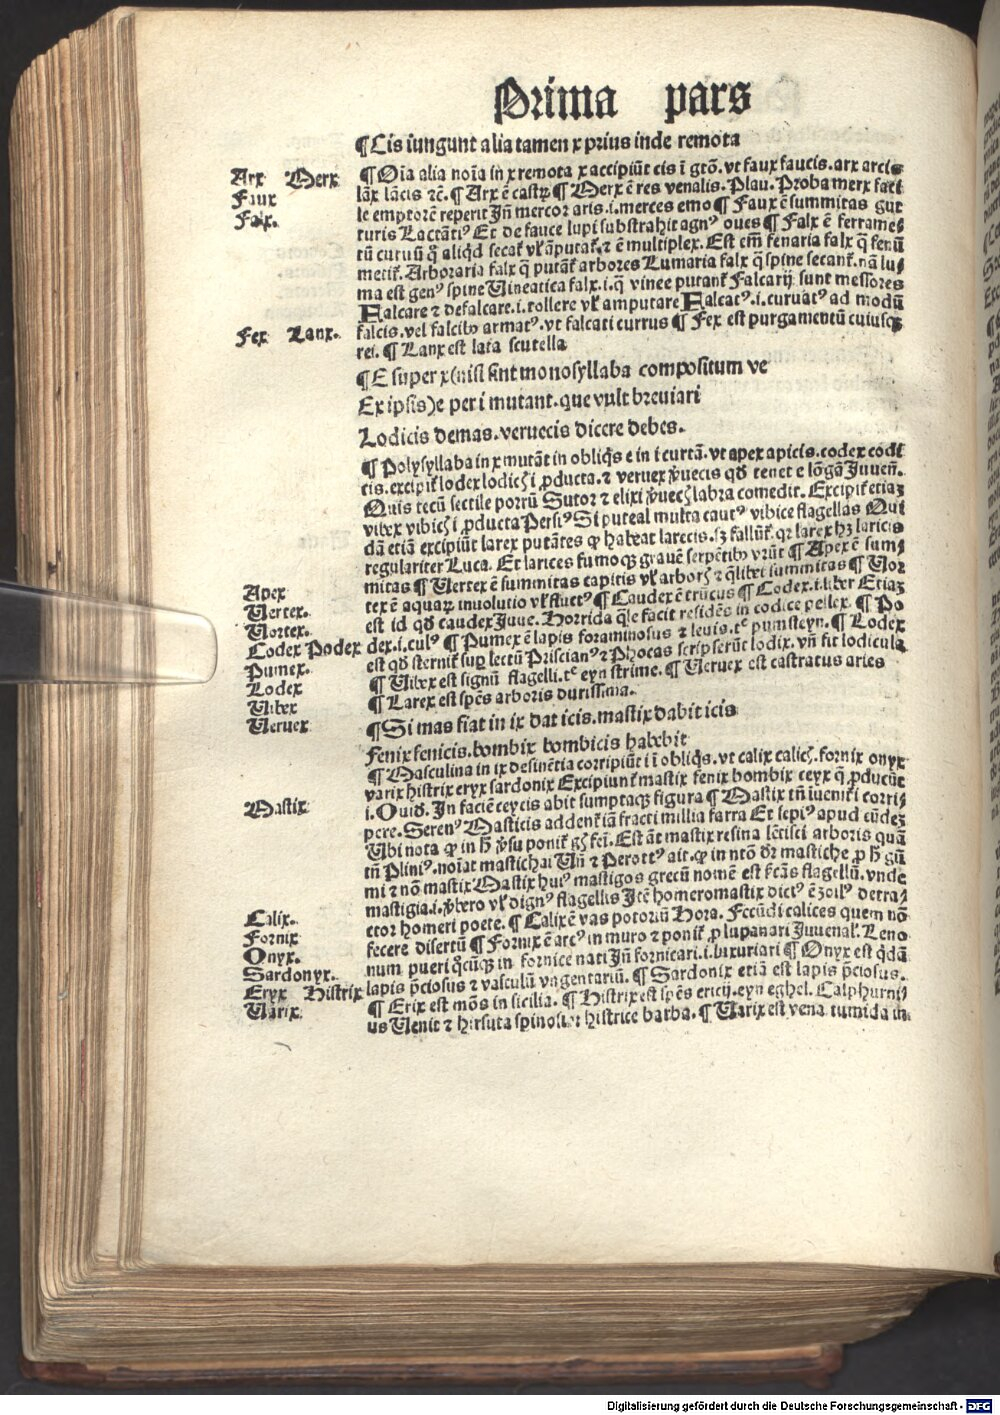 Prima pars
¶ Cis iungunt alia tamen x prius inde remota
Arx Merx
Faux
Falx.
¶ Oīa alia noīa in x remota x accipiūt cis ī gtō. vt faux faucis. arx arcis
lāx lācis ⁊c̄. ¶ Arx ē castꝝ ¶ Merx ē res venalis. Plau. Proba merx faci
le emptorē reperit Jn̄ mercor aris .i. merces emo ¶ Faux ē summitas gut
turis Lactātiꝰ Et de fauce lupi substrahit agnꝰ oues ¶ Falx ē ferramē⸗
tū curuū q̊ aliqd secat᷑ vl᷑ āputat᷑. ⁊ ē multiplex. Est em̄ fenaria falx q̄ fenū
metit᷑. Arboraria falx q̄ putāt᷑ arbores Lumaria falx q̄ spine secant᷑. nā lu⸗
ma est genꝰ spine Vineatica falx .i. q̄ vinee putant᷑ Falcarij sunt messores
Falcare ⁊ defalcare .i. tollere vl᷑ amputare Falcatꝰ .i. curuatꝰ ad modū
Fex Lanx.
falcis. vel falcibꝰ armatꝰ. vt falcati currus ¶ Fex est purgamentū cuiusqꝫ
rei. ¶ Lanx est lata scutella
¶ E super x (nisi sint monosyllaba compositum ve
Ex ipsis) e per i mutant. que vult breuiari
Lodicis demas. veruecis dicere debes.
¶ Polysyllaba in x mutāt in obliq̇s e in i curtā. vt apex apicis. codex codi
cis. excipit᷑ lodex lodicꝭ i ꝓducta. ⁊ veruex ꝟuecis qd̄ tenet e lōgā Juuen̄.
Quis tecū sectile porrū Sutor ⁊ elixi ꝟuecꝭ labra comedit. Excipit᷑ etiaꝫ
vibex vibicꝭ i ꝓducta Persiꝰ Si puteal multa cautꝰ vibice flagellas Qui
dā etiā excipiūt larex putātes ꝙ habeat larecis. sꝫ fallūt᷑. qꝛ larex hꝫ laricis
regulariter Luca. Et larices fumoqꝫ grauē serpētibꝰ vrūt ¶ Apex ē sum⸗
Apex
Vertex.
Vortex.
Codex Podex
Pumex.
Lodex
Vibex
Veruex
mitas ¶ Vertex ē summitas capitis vl᷑ arborꝭ ⁊ q̄libet summitas ¶ Vor
tex ē aquaꝝ inuolutio vl᷑ fluctꝰ ¶ Caudex ē trūcus ¶ Codex .i. liber Etiaꝫ
est id qd̄ caudex Juue. Horrida q̄le facit residēs in codice pellex. ¶ Po
dex .i. culꝰ ¶ Pumex ē lapis foraminosus ⁊ leuis. tc̄ pumsteyn. ¶ Lodex
est qd̄ sternit᷑ suꝑ lectū Priscianꝰ ⁊ Phocas scripserūt lodix. vn̄ fit lodicula
¶ Vibex est signū flagelli. tc̄ eyn strime. ¶ Veruex est castratus aries
¶ Larex est spēs arboris durissima.
¶ Si mas fiat in ix dat icis. mastix dabit icis
Fenix fenicis. bombix bombicis habebit
¶ Masculina in ix desinētia corripiūt i ī obliq̇s. vt calix calicꝭ. fornix onyx
varix histrix eryx sardonix Excipiunt᷑ mastix fenix bombix ceyx q̄ ꝓducūt
Mastix
i. Ouid. In faciē ceycis abit sumptaqꝫ figura ¶ Mastix tn̄ iuenit᷑ i corri⸗
pere. Serenꝰ Masticis addent᷑ iā fracti millia farra Et sepiꝰ apud eūdeꝫ
Vbi nota ꝙ in h̄ ꝟsu ponit᷑ gꝭ fēi. Est āt mastix resina lētisci arboris quā
tn̄ Pliniꝰ. noīat mastichai Vn̄ ⁊ Perottꝰ ait. ꝙ in ntō dr̄ mastiche ꝓ h̄ gū
mi ⁊ nō mastix Mastix huiꝰ mastigos grecū nomē est sc̄ās flagellū. vnde
mastigia .i. ꝟbero vl᷑ dignꝰ flagellis Jtē homeromastix dictꝰ ē zoilꝰ detra⸗
Calix.
Fornix
Onyx.
Sardonyx.
Eryx Histrix
Varix
ctor homeri poete. ¶ Calix ē vas potoriū Hora. Fecūdi calices quem nō
fecere disertū ¶ Fornix ē arcꝰ in muro ⁊ ponit᷑ ꝓ lupanari Juuenal᷑. Leno
num pueri q̊cūqꝫ in fornice nati Jn̄ fornicari .i. luxuriari ¶ Onyx est q̇dā
lapis p̄ciosus ⁊ vasculū vngentariū. ¶ Sardonix etiā est lapis p̄ciosus.
¶ Erix est mōs in sicilia. ¶ Histrix est spēs ericij. eyn eghel. Calphurni⸗
us Venit ⁊ hirsuta spinosior histrice barba. ¶ Varix est vena tumida in
Digitalisierung gefördert durch die Deutsche Forschungsgemeinschaft - DFG